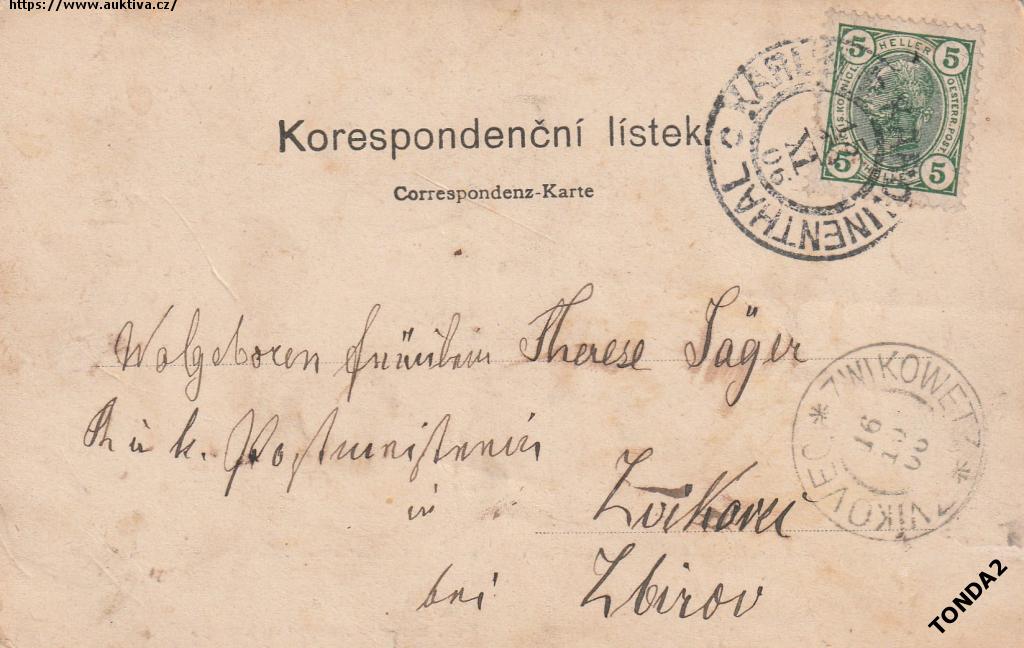 https://www.auktiva.cz/
5 HELLER 5
OESTERR. POST
5 5
KAROLINENTHAL C
IX
06
Korespondenční lístek
Correspondenz-Karte
Wolgeboren Fräulein Therese Jäger
k u k. Postmeisterin
in Zvíkovec
bei Zbirov
* ZWIKOWETZ * ZVIKOVEC
16
TONDA2